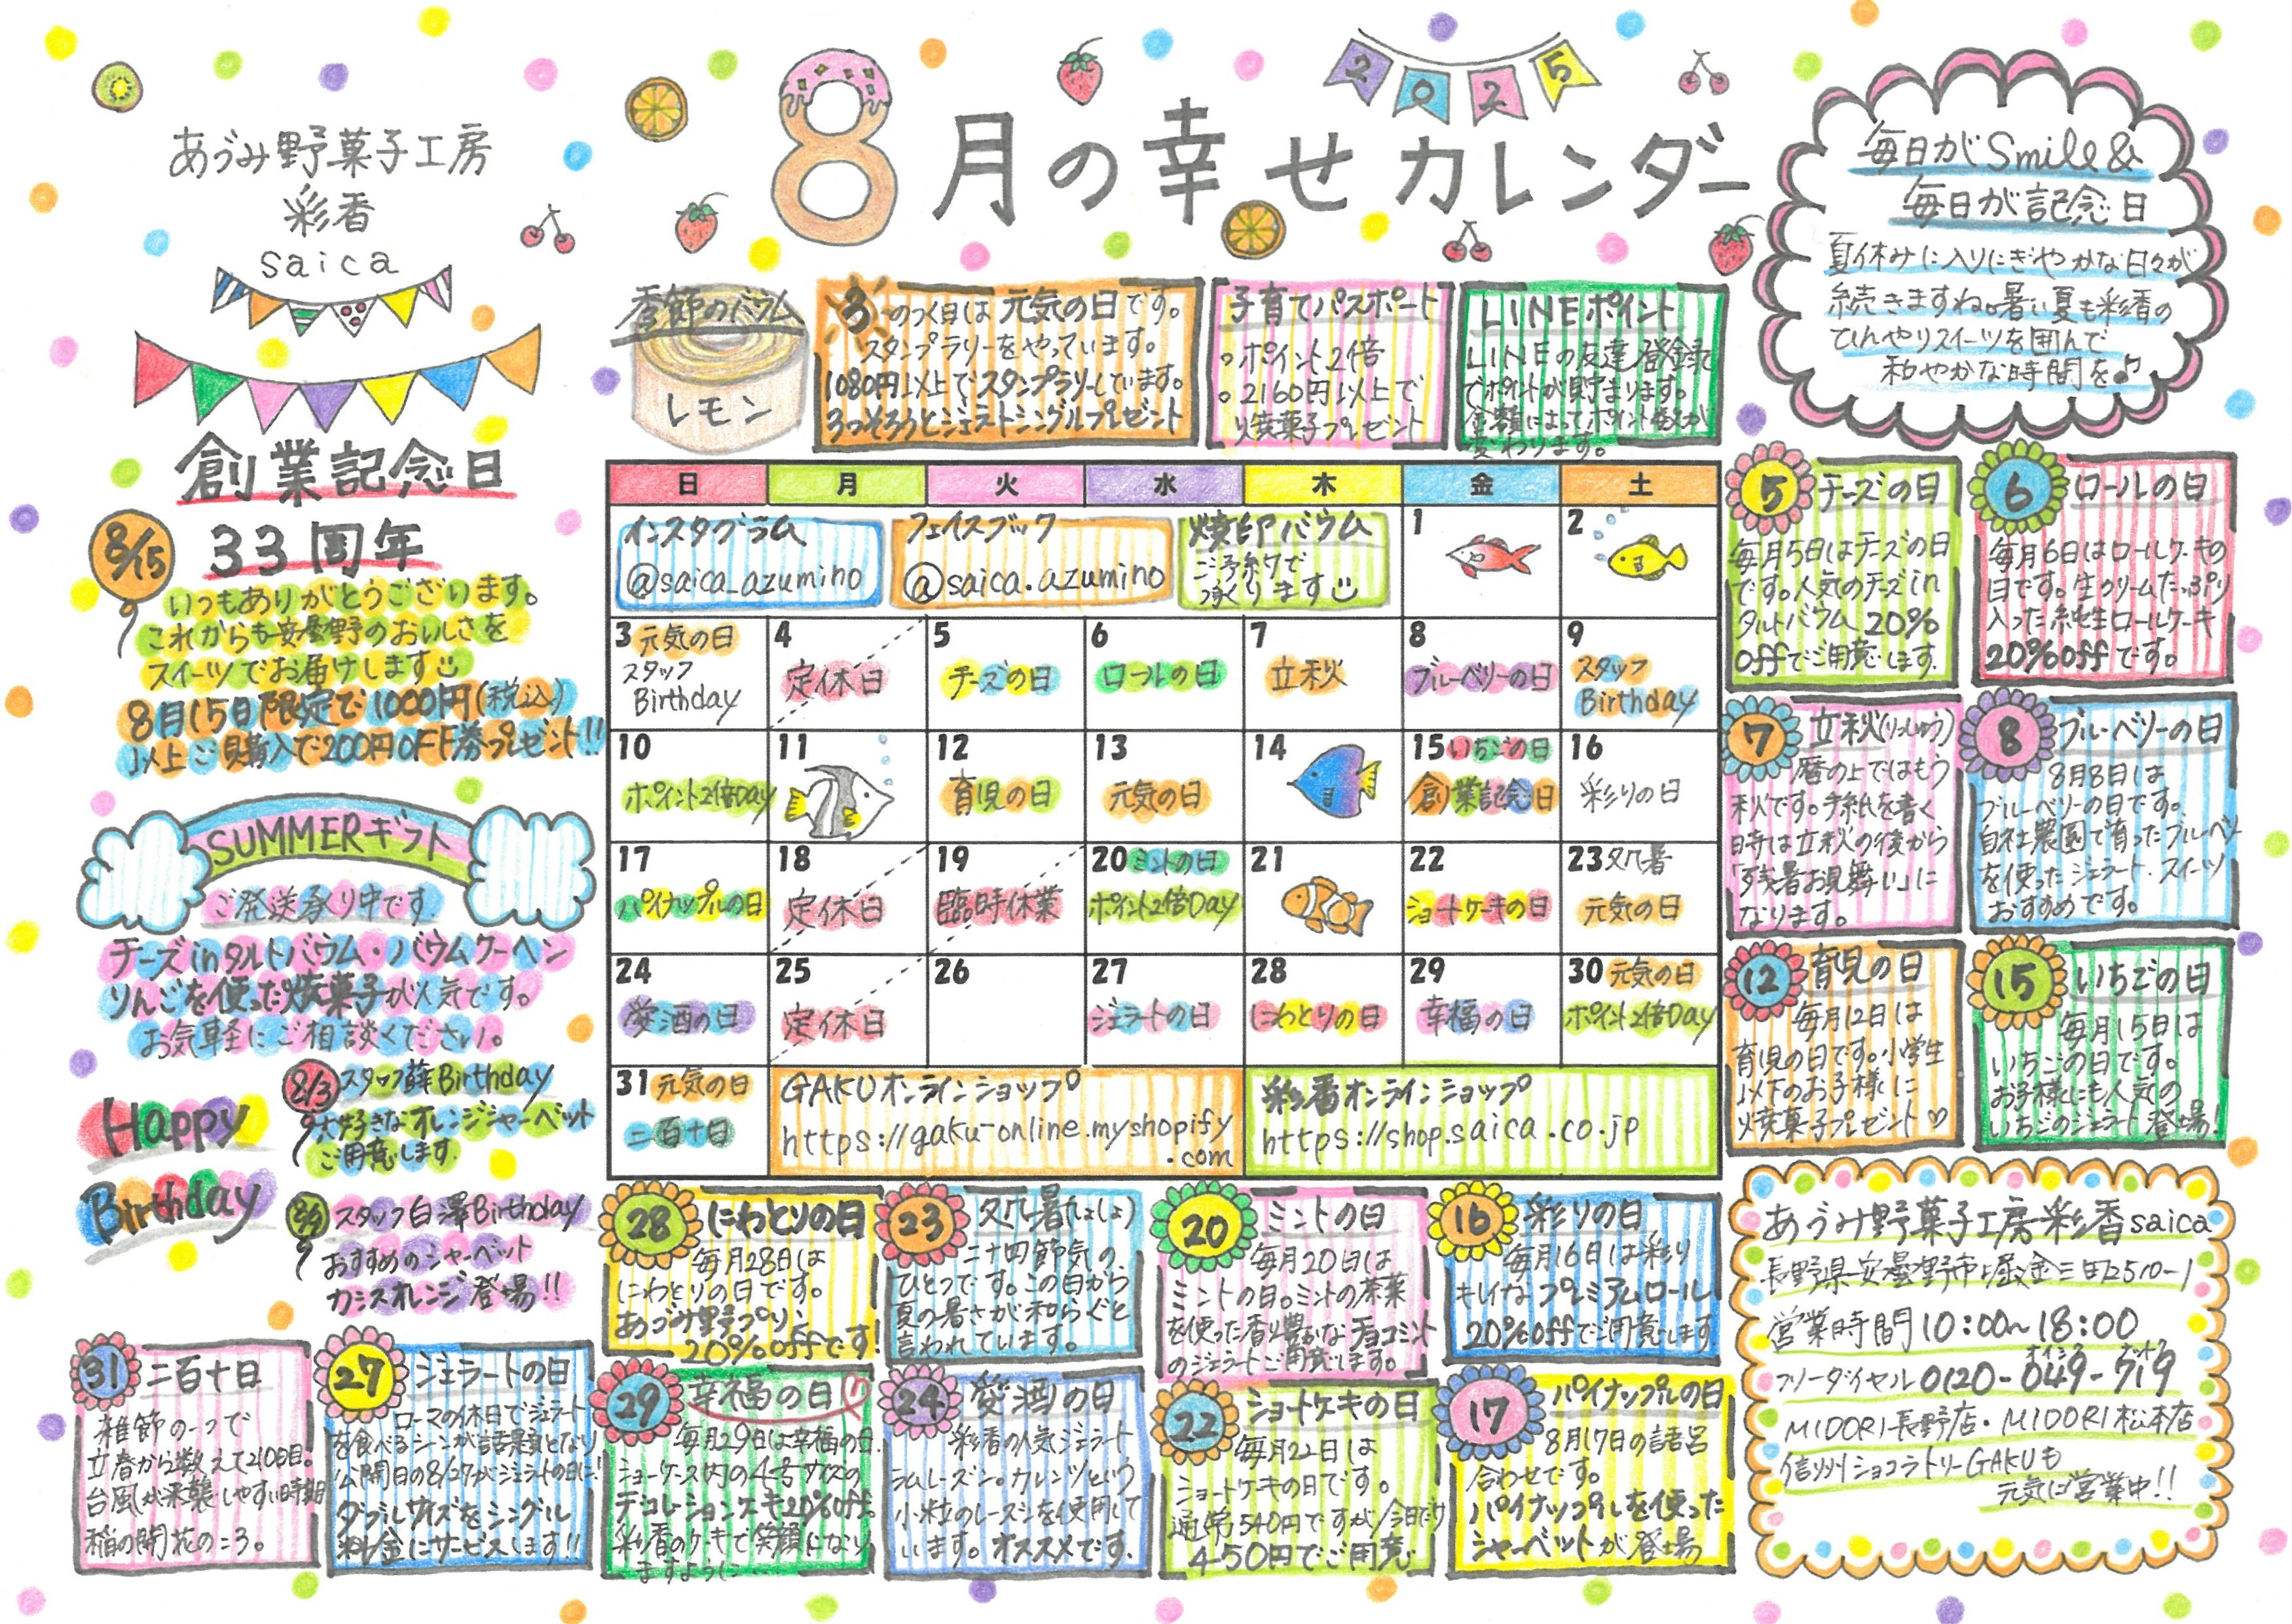 あづみ野菓子工房
彩香
saica
8月の幸せカレンダー
2025
毎日がSmile&
毎日が記念日
夏休みに入りにぎやかな日々が
続きますね。暑い夏も彩香の
ひんやりスイーツを囲んで
和やかな時間を♪
季節のバウム
レモン
3のつく日は元気の日です。
スタンプラリーをやっています。
1080円以上でスタンプラリーしています。
3つそろうとジェラートシングルプレゼント
子育てパスポート
○ポイント2倍
○2160円以上で
焼菓子プレゼント
LINEポイント
LINEの友達登録
でポイントが貯まります。
金額によってポイント数が
変わります。
創業記念日
8/15 33周年
いつもありがとうございます。
これからも安曇野のおいしさを
スイーツでお届けします
8月15日限定で1000円(税込)
以上ご購入で200円OFF券プレゼント!!
SUMMERギフト
ご発送承り中です。
チーズinタルトバウム・バウムクーヘン
りんごを使った焼菓子が人気です。
お気軽にご相談ください。
Happy
Birthday
8/3 スタッフ Birthday
大好きなオレンジシャーベット
ご用意します。
8/9 スタッフ白澤Birthday
おすすめのシャーベット
カシスオレンジ登場!!
日 月 火 水 木 金 土
インスタグラム
@saica_azumino
フェイスブック
@saica.azumino
焼印バウム
ご予約で
承ります
1
2
3 元気の日
スタッフ
Birthday
4
定休日
5
チーズの日
6
ロールの日
7
立秋
8
ブルーベリーの日
9
スタッフ
Birthday
10
ポイント2倍Day
11
12
育児の日
13
元気の日
14
15 いちごの日
創業記念日
16
彩りの日
17
パイナップルの日
18
定休日
19
臨時休業
20 ミントの日
ポイント2倍Day
21
22
ショートケーキの日
23 処暑
元気の日
24
愛酒の日
25
定休日
26
27
ジェラートの日
28
にわとりの日
29
幸福の日
30 元気の日
ポイント2倍Day
31 元気の日
二百十日
GAKUオンラインショップ
https://gaku-online.myshopify
.com
彩香オンラインショップ
https://shop.saica.co.jp
5 チーズの日
毎月5日はチーズの日
です。人気のチーズin
タルトバウム20%
offでご用意します。
6 ロールの日
毎月6日はロールケーキの
日です。生クリームたっぷり
入った純生ロールケーキ
20%offです。
7 立秋(りっしゅう)
暦の上ではもう
秋です。手紙を書く
時は立秋の後から
「残暑お見舞い」に
なります。
8 ブルーベリーの日
8月8日は
ブルーベリーの日です。
自社農園で育ったブルーベリー
を使ったジェラート、スイーツ
おすすめです。
12 育児の日
毎月12日は
育児の日です。小学生
以下のお子様に
焼菓子プレゼント♡
15 いちごの日
毎月15日は
いちごの日です。
お子様にも人気の
いちごのジェラート登場!
28 にわとりの日
毎月28日は
にわとりの日です。
あづみ野プリン
20%offです!
23 処暑(しょしょ)
二十四節気の、
ひとつです。この日から
夏の暑さが和らぐと
言われています。
20 ミントの日
毎月20日は
ミントの日。ミントの茶葉
を使った香り豊かなチョコミント
のジェラートご用意します。
16 彩りの日
毎月16日は彩り
キレイなプレミアムロール
20%offでご用意します
31 二百十日
雑節の一つで
立春から数えて210日目。
台風が来襲しやすい時期
稲の開花のころ。
27 ジェラートの日
ローマの休日でジェラート
を食べるシーンが話題となり
公開日の8/27がジェラートの日に!
ダブルサイズをシングル
料金にサービスします!!
29 幸福の日
毎月29日は幸福の日。
ショーケース内の4号サイズの
デコレーションケーキ20%off。
彩香のケーキで笑顔になり
ますように…
24 愛酒の日
彩香の人気ジェラート
ラムレーズン。カレンツという
小粒のレーズンを使用して
います。オススメです。
22 ショートケーキの日
毎月22日は
ショートケーキの日です。
通常540円ですが今日だけ
450円でご用意
17 パイナップルの日
8月17日の語呂
合わせです。
パイナップルを使った
シャーベットが登場
あづみ野菓子工房 彩香saica
長野県安曇野市堀金三田2510-1
営業時間10:00〜18:00
フリーダイヤル 0120-049-719
MIDORI長野店・MIDORI松本店
信州ショコラトリーGAKUも
元気に営業中!!